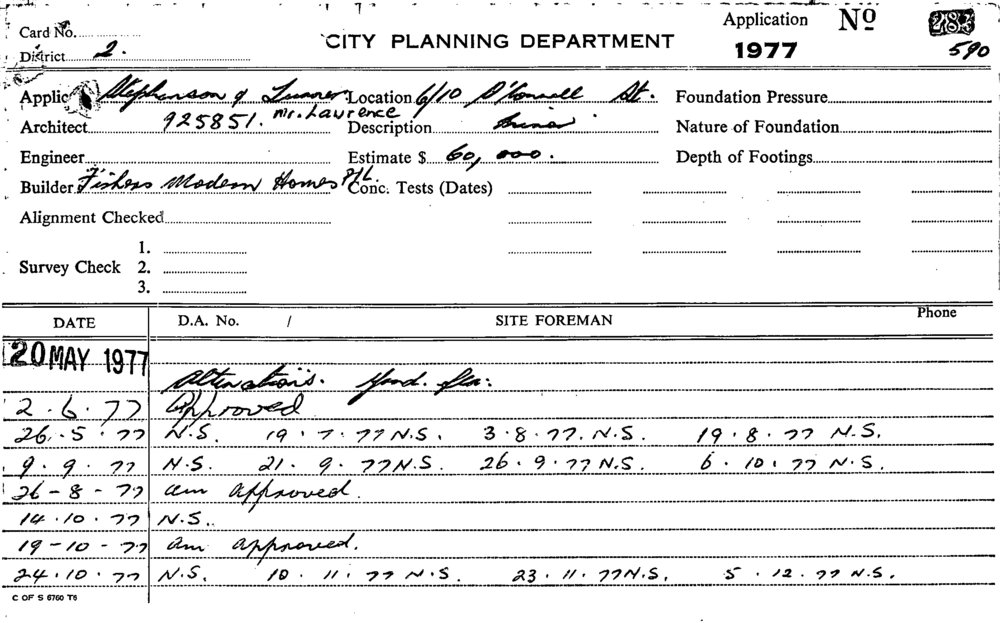 Card No.
Application Nº 283
CITY PLANNING DEPARTMENT
District 2. 1977 590
Applic Stephenson & Turner Location 6/10 O'Connell St. Foundation Pressure
Architect 925851. Mr. Lawrence Description Nature of Foundation
Engineer Estimate $ 60,000. Depth of Footings
Builder Fishers Modern Homes P/L. Conc. Tests (Dates)
Alignment Checked
1.
Survey Check 2.
3.
DATE D.A. No. / SITE FOREMAN Phone
20 MAY 1977
Alterations.
2.6.77 Approved
26.5.77 N.S. 19.7.77 N.S. 3.8.77. N.S. 19.8.77 N.S.
9.9.77 N.S. 21.9.77 N.S. 26.9.77 N.S. 6.10.77 N.S.
26-8-77 am approved.
14.10.77 N.S.
19-10-77 am approved.
24.10.77 N.S. 10.11.77 N.S. 23.11.77 N.S. 5.12.77 N.S.
C OF S 6760 T6